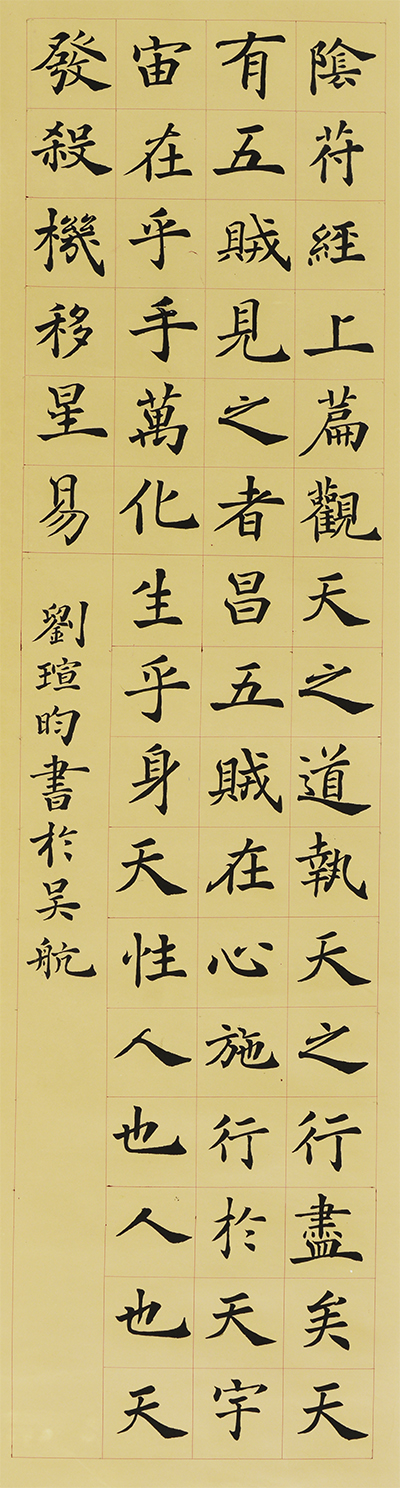 陰符經上篇觀天之道執天之行盡矣天
有五賊見之者昌五賊在心施行於天宇
宙在乎手萬化生乎身天性人也人也天
發殺機移星易
劉瑄昀書於吴航